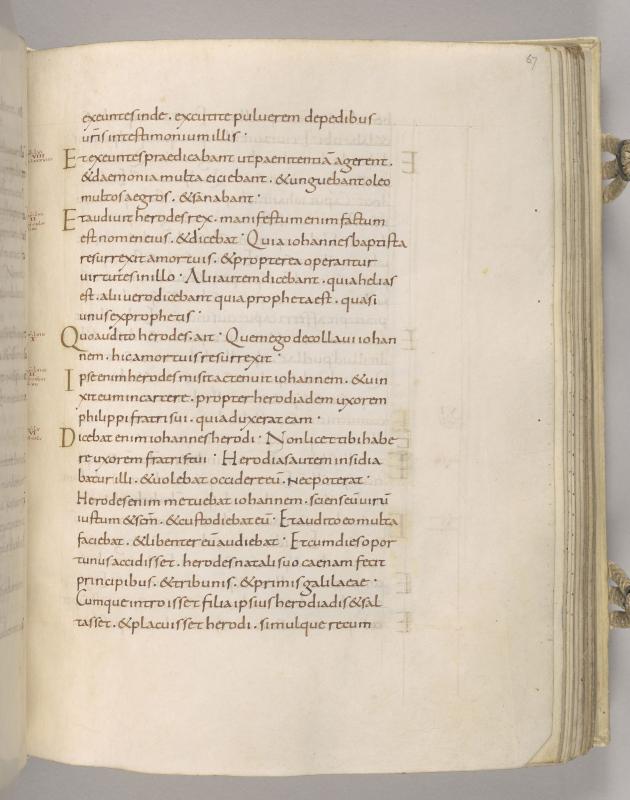 67
exeuntes inde . excutite pulverem de pedibus
vr̄is in testimonium illis .
Et exeuntes praedicabant ut paenitentiā agerent .
& daemonia multa eiciebant . & unguebant oleo
multos aegros . & sanabant .
Et audivit herodes rex . manifestum enim factum
est nomen eius . & dicebat . Quia iohannes baptista
resurrexit a mortuis . & propterea operantur
virtutes in illo . Alii autem dicebant . quia helias
est . alii vero dicebant quia propheta est . quasi
unus ex prophetis .
Quo audito herodes . ait . Quem ego decollavi iohan
nem . hic a mortuis resurrexit .
Ipse enim herodes misit ac tenuit iohannem . & vin
xit eum in carcere . propter herodiadem uxorem
philippi fratri sui . quia duxerat eam .
Dicebat enim iohannes herodi . Non licet tibi habe
re uxorem fratris tui . Herodias autem insidia
batur illi . & volebat occidere eū . nec poterat .
Herodes enim metuebat iohannem . sciens eū virū
iustum & sc̄m . & custodiebat eū . Et audito eo multa
faciebat . & libenter eū audiebat . Et cum dies opor
tunus accidisset . herodes natali suo caenam fecit
principibus . & tribunis . & primis galilaeae .
Cumque introisset filia ipsius herodiadis & sal
tasset . & placuisset herodi . simulque recum